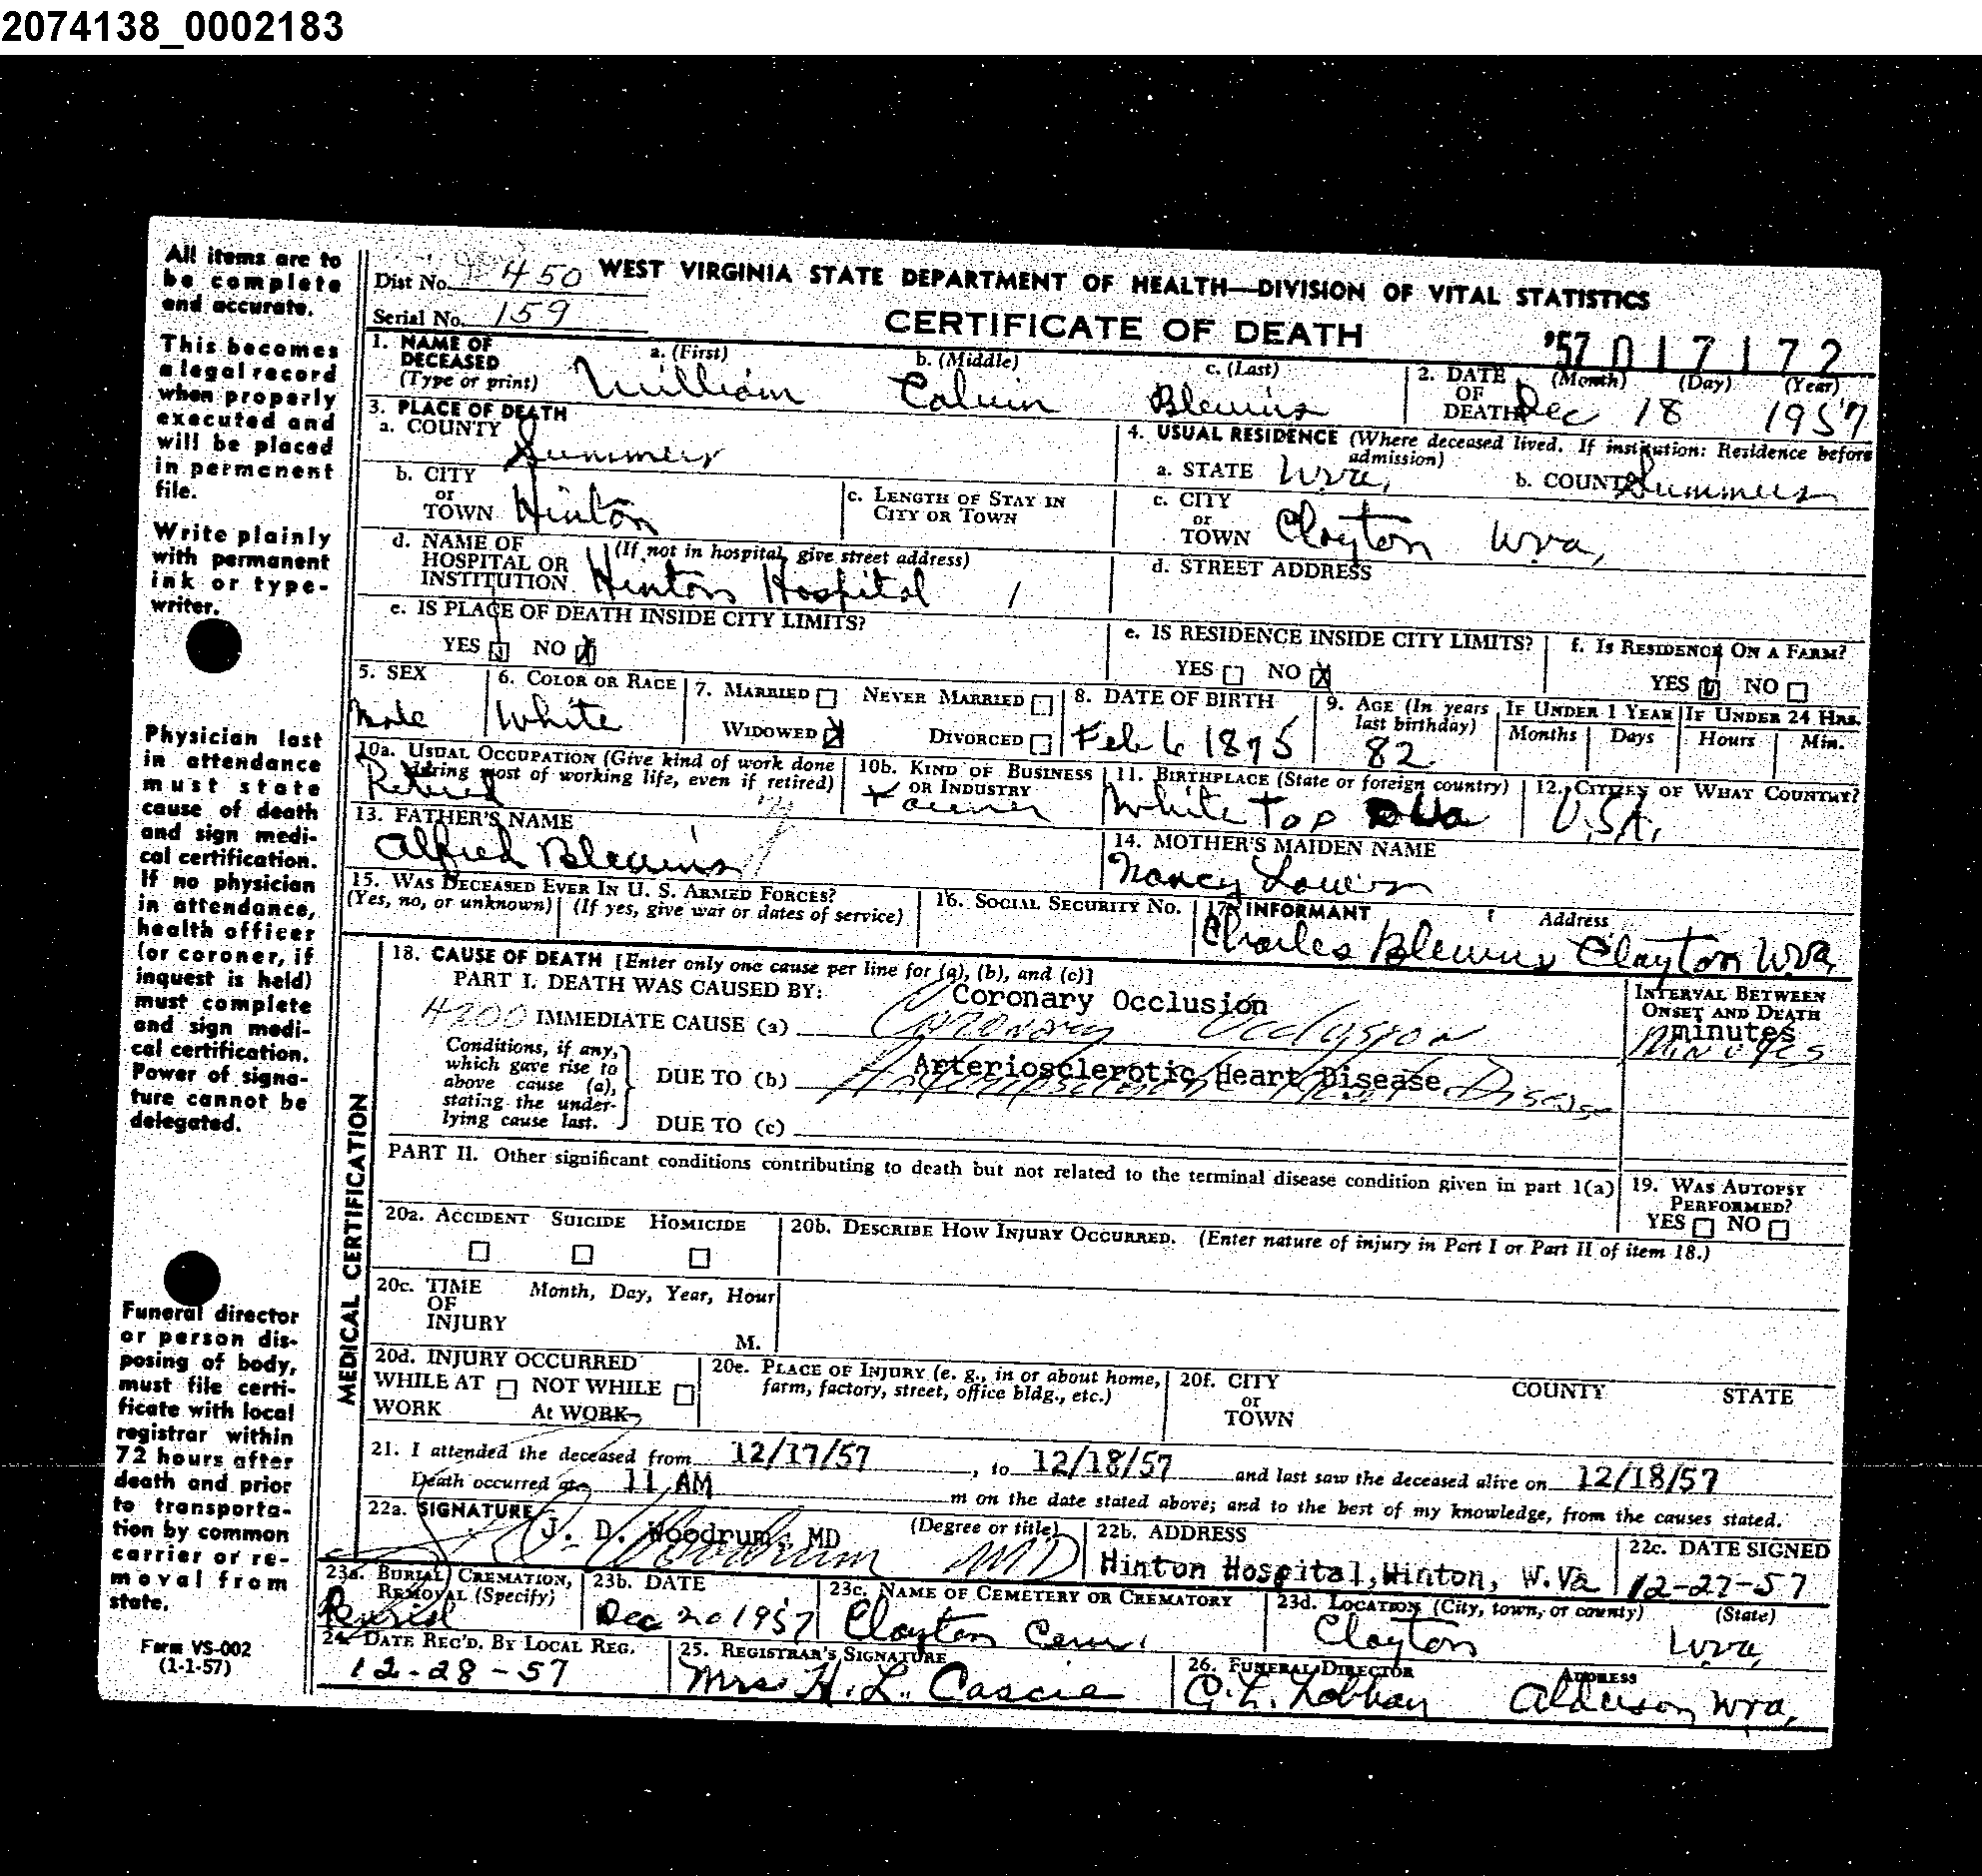 2074138_0002183
All items are to
be complete
and accurate.
This becomes
a legal record
when properly
executed and
will be placed
in permanent
file.
Write plainly
with permanent
ink or type-
writer.
Physician last
in attendance
must state
cause of death
and sign medi-
cal certification.
If no physician
in attendance,
health officer
(or coroner, if
inquest is held)
must complete
and sign medi-
cal certification.
Power of signa-
ture cannot be
delegated.
Funeral director
or person dis-
posing of body,
must file certi-
ficate with local
registrar within
72 hours after
death and prior
to transporta-
tion by common
carrier or re-
moval from
state.
Form VS-002
(1-1-57)
Dist No. 450 WEST VIRGINIA STATE DEPARTMENT OF HEALTH—DIVISION OF VITAL STATISTICS
Serial No. 159 CERTIFICATE OF DEATH
'57 017172
1. NAME OF DECEASED (Type or print) a. (First) William b. (Middle) Calvin c. (Last) Blevins
2. DATE OF DEATH (Month) (Day) (Year) Dec 18 1957
3. PLACE OF DEATH
a. COUNTY Summers
b. CITY or TOWN Hinton
c. LENGTH OF STAY IN CITY OR TOWN
d. NAME OF HOSPITAL OR INSTITUTION (If not in hospital, give street address) Hinton Hospital
e. IS PLACE OF DEATH INSIDE CITY LIMITS?
YES NO
4. USUAL RESIDENCE (Where deceased lived. If institution: Residence before admission)
a. STATE Wva, b. COUNTY Summers
c. CITY or TOWN Clayton Wva,
d. STREET ADDRESS
e. IS RESIDENCE INSIDE CITY LIMITS?
YES NO X
f. IS RESIDENCE ON A FARM?
YES NO
5. SEX Male
6. COLOR OR RACE White
7. MARRIED NEVER MARRIED
WIDOWED X DIVORCED
8. DATE OF BIRTH Feb 6 1875
9. AGE (In years last birthday) 82
IF UNDER 1 YEAR Months Days
IF UNDER 24 HRS. Hours Min.
10a. USUAL OCCUPATION (Give kind of work done during most of working life, even if retired) Retired
10b. KIND OF BUSINESS OR INDUSTRY Farmer
11. BIRTHPLACE (State or foreign country) White Top Va
12. CITIZEN OF WHAT COUNTRY? U.S.A.
13. FATHER'S NAME
Alfred Blevins
14. MOTHER'S MAIDEN NAME
Nancy
15. WAS DECEASED EVER IN U. S. ARMED FORCES?
(Yes, no, or unknown) (If yes, give war or dates of service)
16. SOCIAL SECURITY NO.
17. INFORMANT Address
Charles Blevins Clayton Wva,
MEDICAL CERTIFICATION
18. CAUSE OF DEATH [Enter only one cause per line for (a), (b), and (c)]
PART I. DEATH WAS CAUSED BY:
Coronary Occlusion
4200 IMMEDIATE CAUSE (a) Coronary Occlusion
INTERVAL BETWEEN ONSET AND DEATH
minutes
minutes
Conditions, if any, which gave rise to above cause (a), stating the underlying cause last.
Arteriosclerotic Heart Disease
DUE TO (b) Arteriosclerotic Heart Disease
DUE TO (c)
PART II. Other significant conditions contributing to death but not related to the terminal disease condition given in part 1(a)
19. WAS AUTOPSY PERFORMED?
YES NO
20a. ACCIDENT SUICIDE HOMICIDE
20b. DESCRIBE HOW INJURY OCCURRED. (Enter nature of injury in Part I or Part II of item 18.)
20c. TIME OF INJURY Month, Day, Year, Hour
M.
20d. INJURY OCCURRED
WHILE AT WORK NOT WHILE AT WORK
20e. PLACE OF INJURY (e. g., in or about home, farm, factory, street, office bldg., etc.)
20f. CITY or TOWN COUNTY STATE
21. I attended the deceased from 12/17/57, to 12/18/57 and last saw the deceased alive on 12/18/57
Death occurred at 11 AM m on the date stated above; and to the best of my knowledge, from the causes stated.
22a. SIGNATURE (Degree or title)
J. D. Woodrum, MD
Woodrum MD
22b. ADDRESS
Hinton Hospital, Hinton, W.Va
22c. DATE SIGNED
12-27-57
23a. BURIAL, CREMATION, REMOVAL (Specify) Burial
23b. DATE
Dec 20 1957
23c. NAME OF CEMETERY OR CREMATORY
Clayton Cem.
23d. LOCATION (City, town, or county) (State)
Clayton Wva,
24. DATE REC'D. BY LOCAL REG.
12-28-57
25. REGISTRAR'S SIGNATURE
Mrs H. L. Cascie
26. FUNERAL DIRECTOR ADDRESS
Alderson Wva,